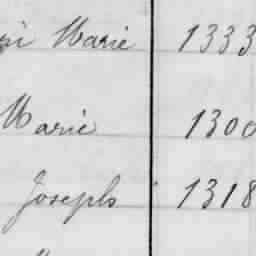 Marie 1333
Marie 1300
Joseph 1318